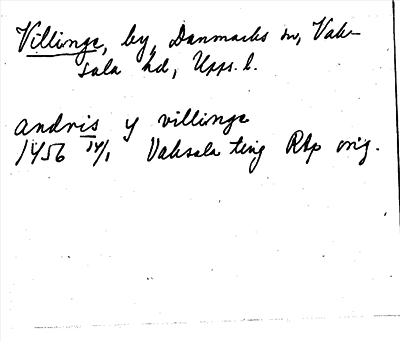 Villinge, by, Danmarks sn, Vak-
sala hd, Upps. l.
andris y villinge
1456 14/1 Vaksala ting Rbp orig.